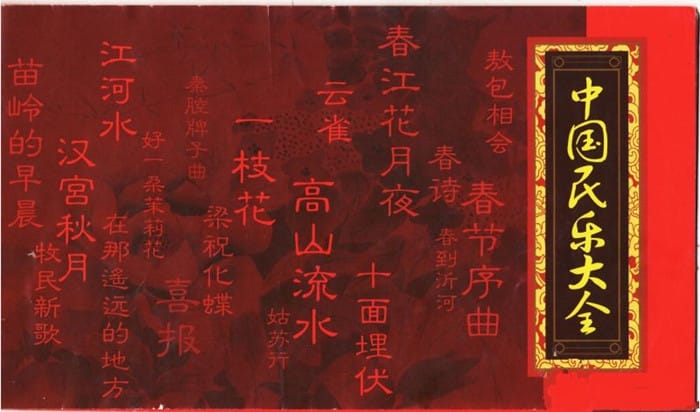 中国民乐大全
敖包相会
春节序曲
春诗
春到沂河
春江花月夜
十面埋伏
云雀
高山流水
姑苏行
一枝花
梁祝化蝶
秦腔牌子曲
喜报
好一朵茉莉花
江河水
在那遥远的地方
汉宫秋月
苗岭的早晨
牧民新歌